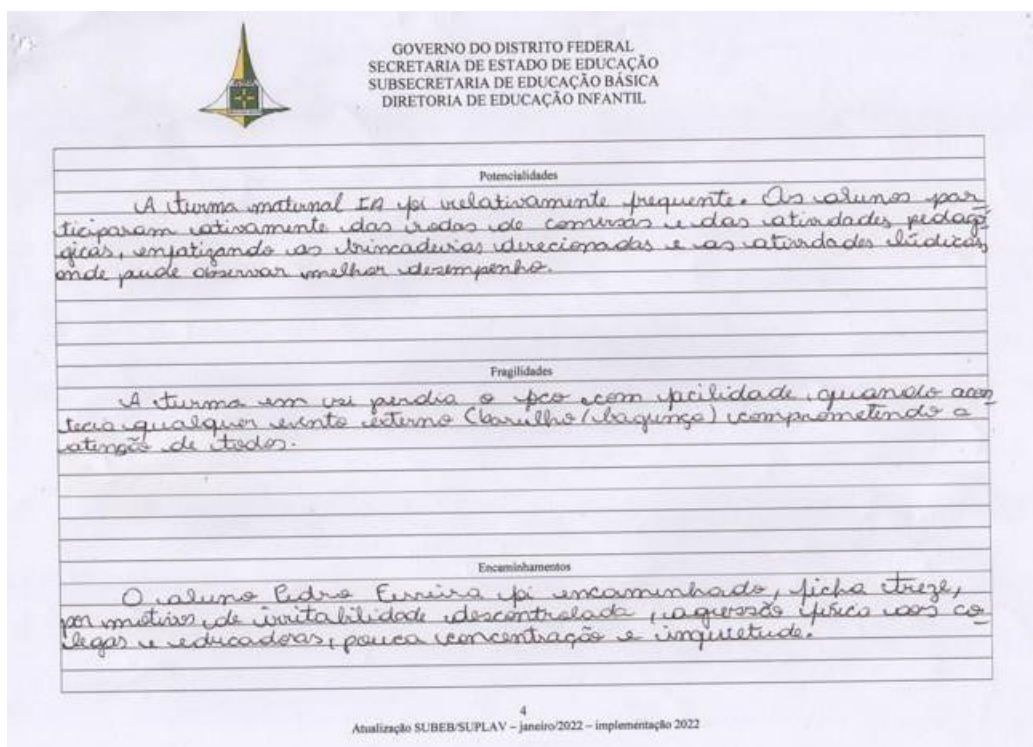 GOVERNO DO DISTRITO FEDERAL
SECRETARIA DE ESTADO DE EDUCAÇÃO
SUBSECRETARIA DE EDUCAÇÃO BÁSICA
DIRETORIA DE EDUCAÇÃO INFANTIL
Potencialidades
A turma maternal IA foi relativamente frequente. Os alunos par
ticiparam ativamente das rodas de conversa e das atividades pedagó
gicas, enfatizando as brincadeiras direcionadas e as atividades lúdicas,
onde pude observar melhor desempenho.
Fragilidades
A turma em si perdia o foco com facilidade, quando acon
tecia qualquer evento externo (barulho/bagunça) comprometendo a
atenção de todos.
Encaminhamentos
O aluno Pedro Ferreira foi encaminhado, ficha treze,
por motivos de irritabilidade descontrolada, agressão física aos co
legas e educadoras, pouca concentração e inquietude.
4
Atualização SUBEB/SUPLAV – janeiro/2022 – implementação 2022